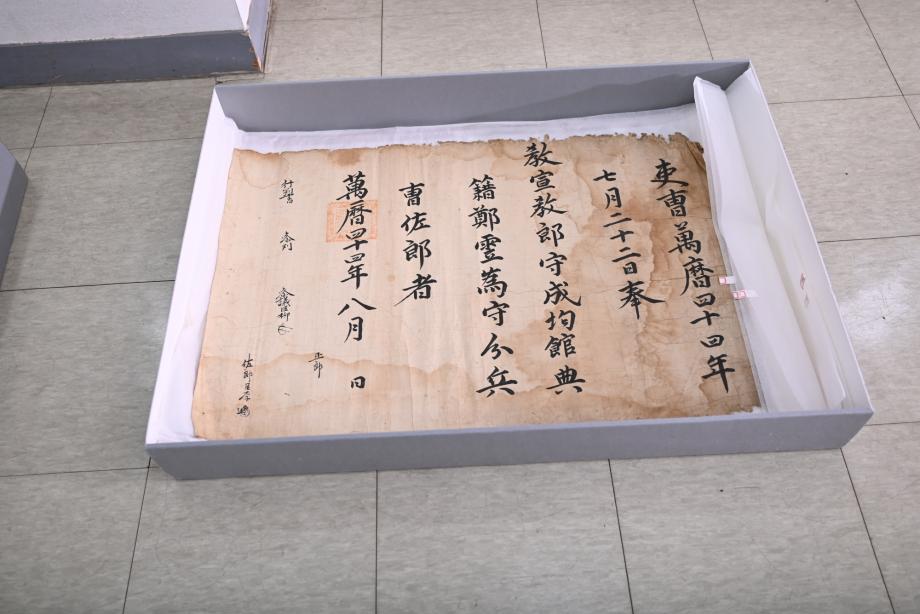 吏曹萬曆四十四年
七月二十二日奉
教宣教郎守成均館典
籍鄭霊為守分兵
曹佐郎者
萬曆四十四年八月 日
正郎
行判書 參判 參議臣柳
佐郎臣李